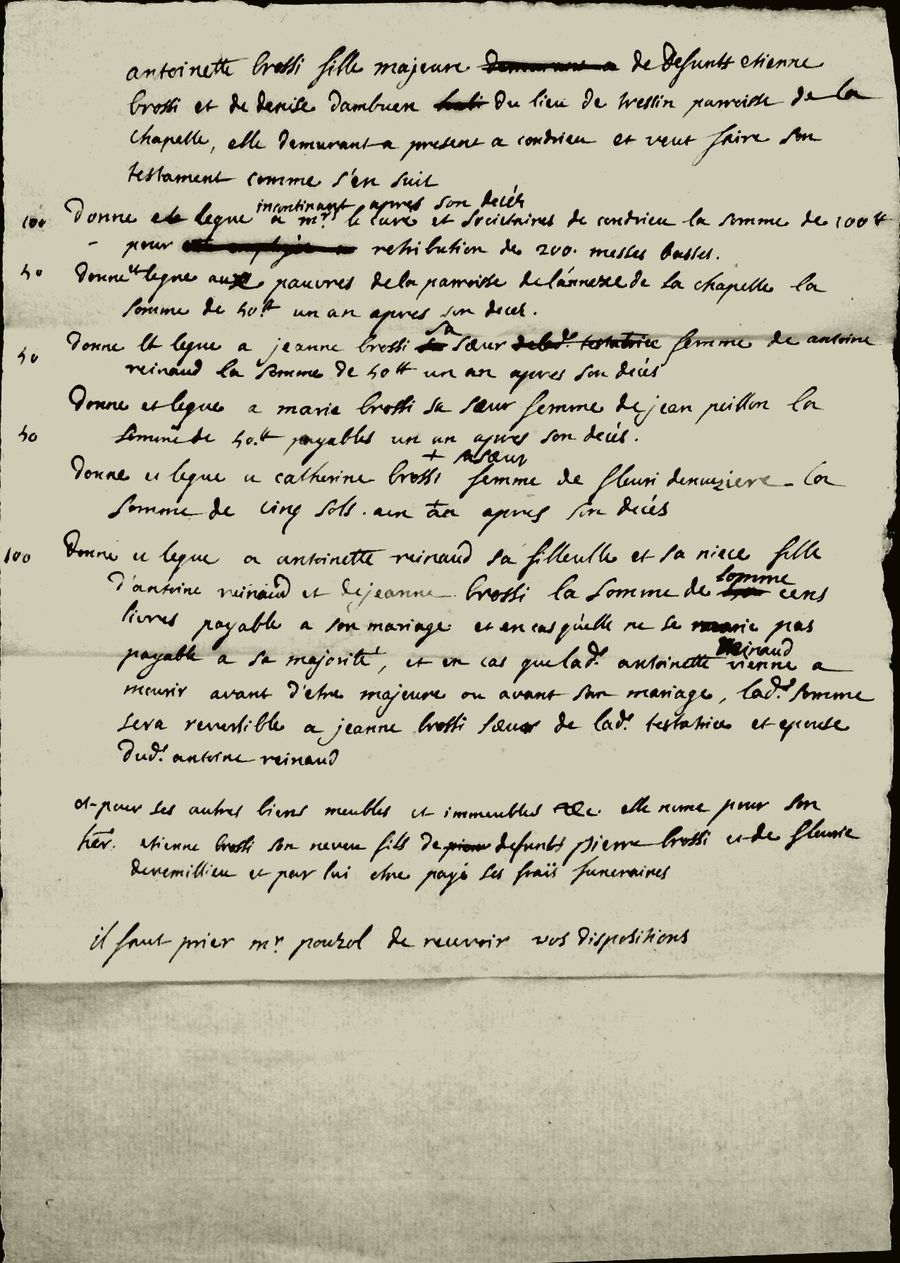 antoinette brossi fille majeure demurant a de Defunts etienne
brossi et de denise dambuen habi Du lieu de tressin parroisse de la
Chapelle, elle demurant a present a condrieu et veut faire son
testament comme s'en suit
incontinant apres son decés
100 Donne et legue a mr. le curé et Societaires de condrieu la somme de 100tt
- pour retribution de 200. messes basses.
50 Donne et legue aux pauvres de la parroisse de l'annexe de la chapelle la
somme de 50.tt un an apres son decés.
sa
50 Donne et legue a jeanne brossi sa sœur de lad. testatrice femme de antoine
reinaud la somme de 50tt un an apres son decés
Donne et legue a marie brossi sa sœur femme de jean peillon la
50 somme de 50.tt payables un an apres son decés.
+ sa sœur
Donne et legue a catherine brossi femme de fleuri denuziere la
Somme de cinq sols. un an apres son decés
100 Donne et legue a antoinette reinaud sa filleulle et sa niece fille
somme
d'antoine reinaud et de jeanne brossi la somme de cens
livres payable a son mariage et en cas qu'elle ne se marie pas
reinaud
payable a sa majorité, et en cas que lad. antoinette vienne a
mourir avant d'etre majeure ou avant son mariage, lad. somme
sera reversible a jeanne brossi sœur de lad. testatrice et epouse
dud. antoine reinaud
et pour ses autres biens meubles et immeubles elle nome pour son
her. etienne brossi son neveu fils de defunts pierre brossi et de fleurie
devemillieu et par lui etre payé ses fraïs funeraires
il faut prier mr. pouzol de recevoir vos dispositions